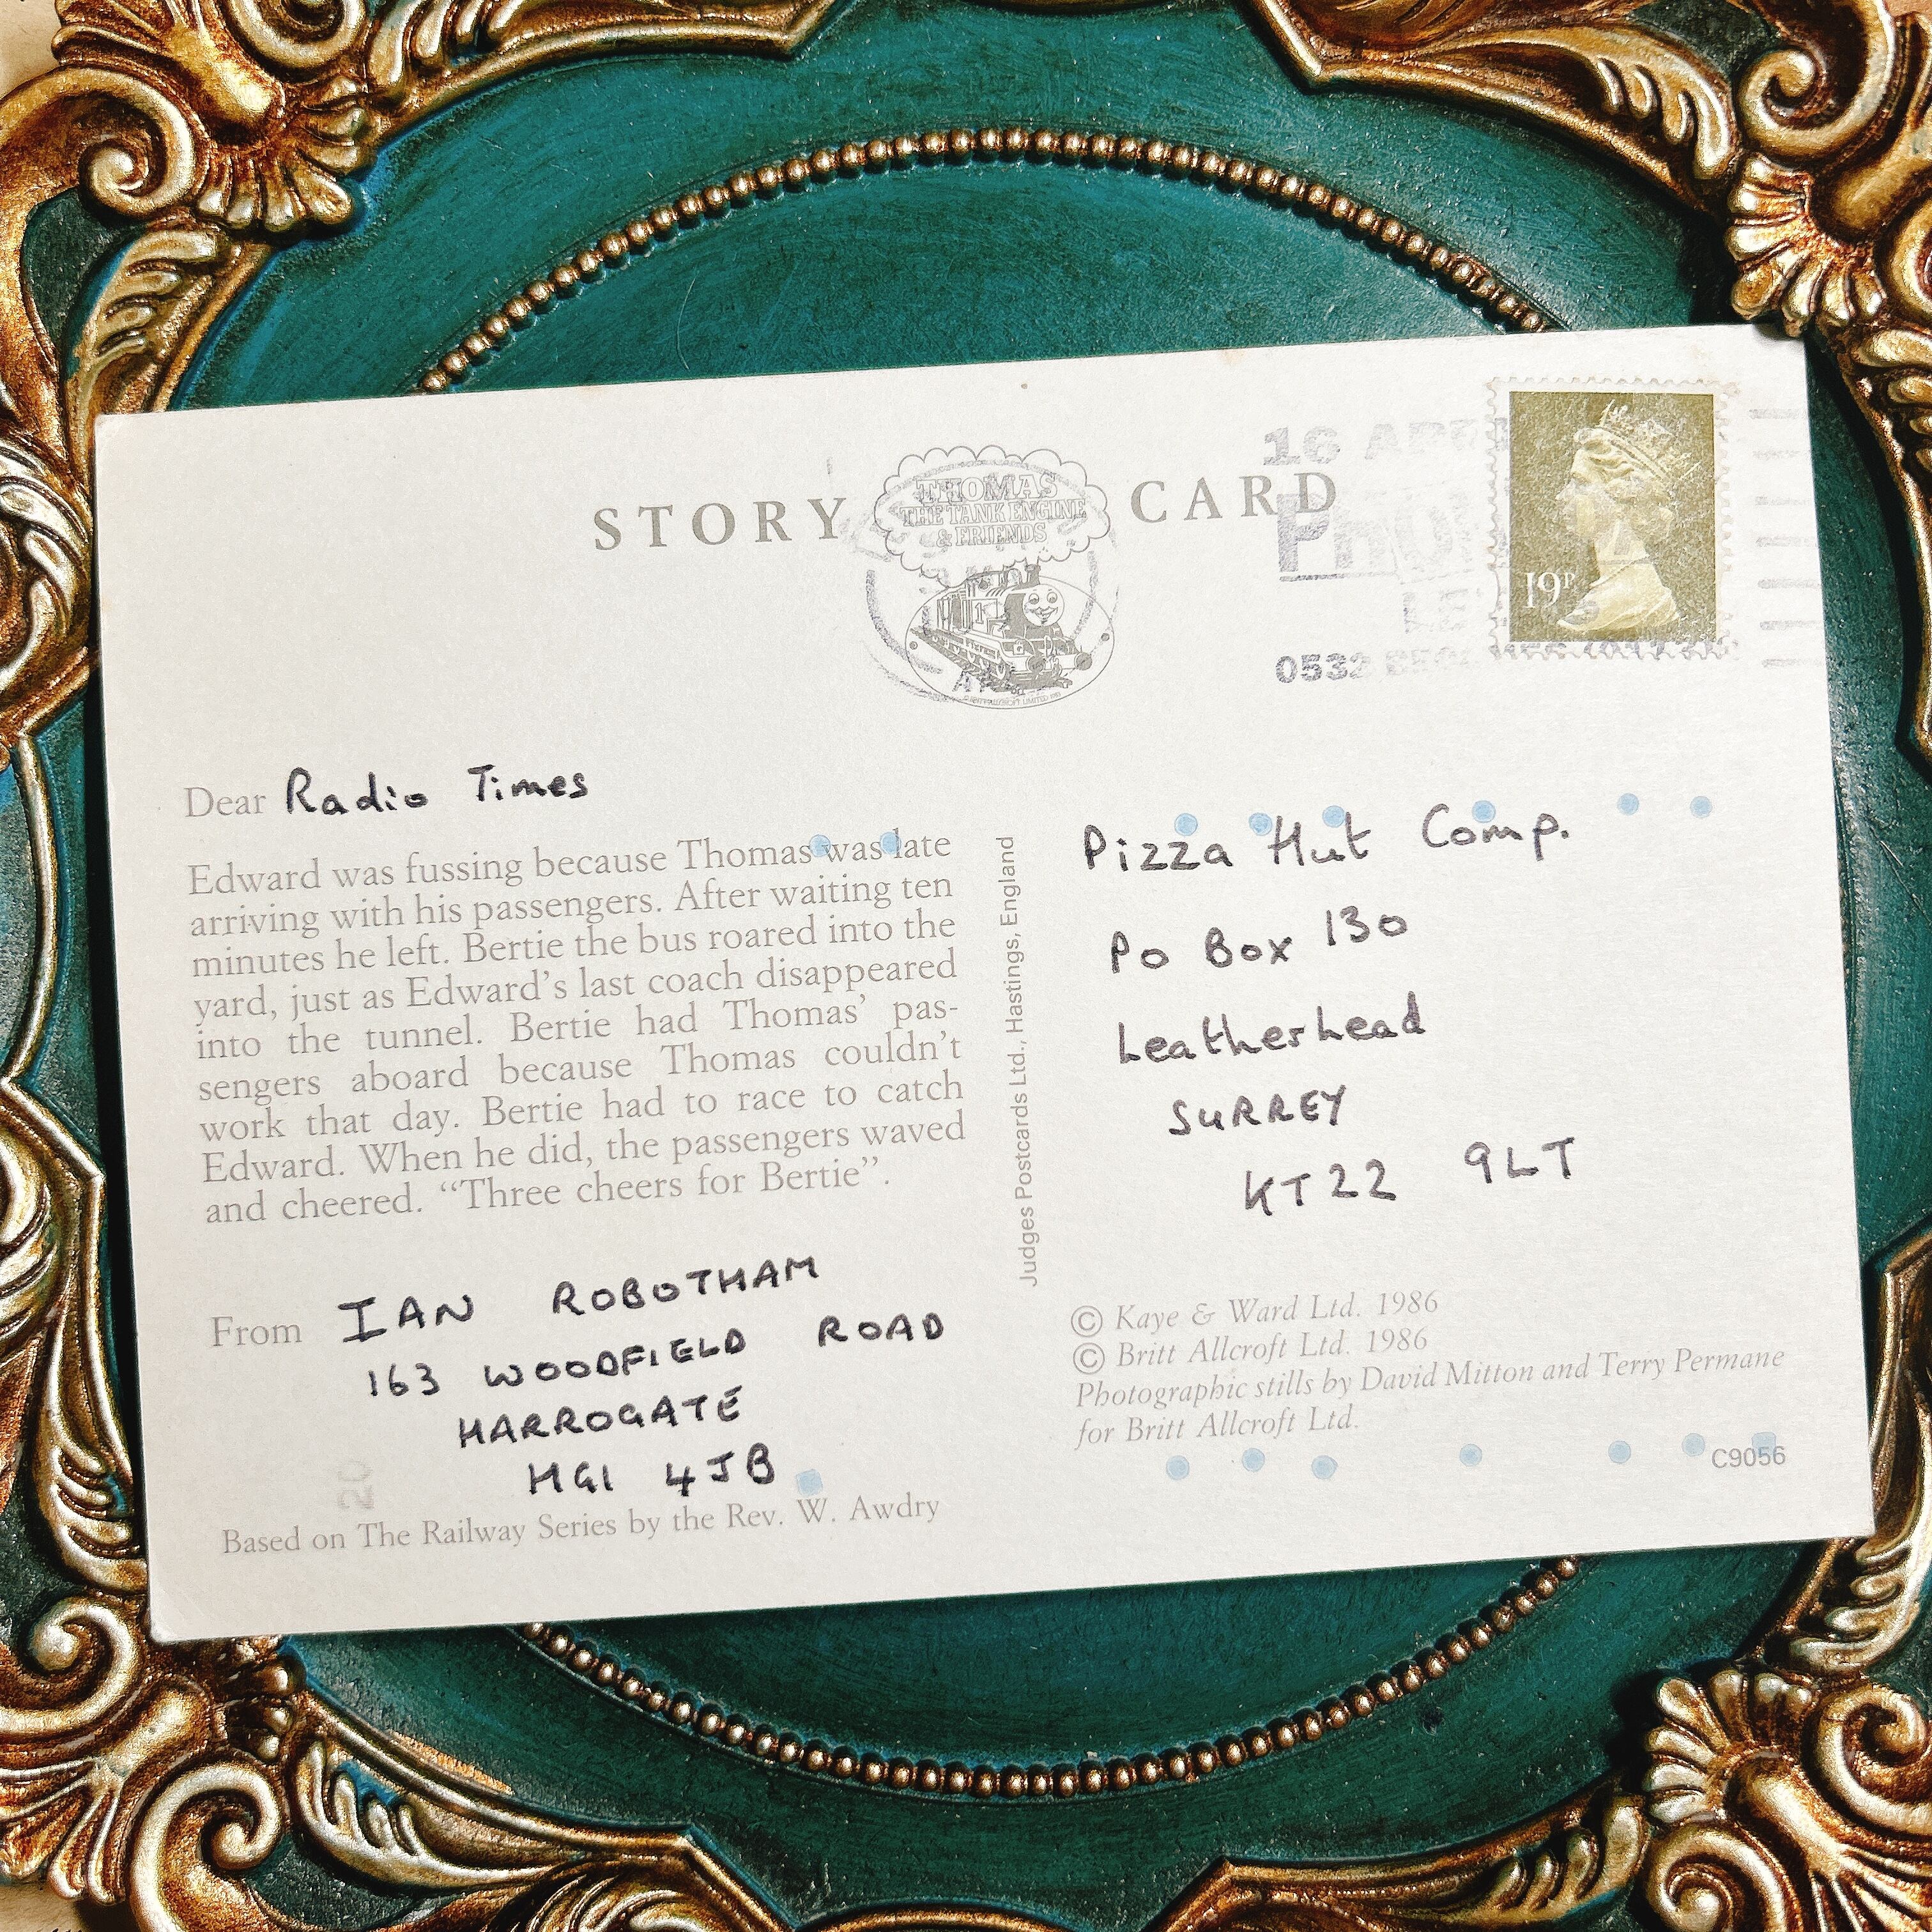 STORY CARD
THOMAS
THE TANK ENGINE
& FRIENDS
1
16 APR
19P
0532
Dear Radio Times
Edward was fussing because Thomas was late
arriving with his passengers. After waiting ten
minutes he left. Bertie the bus roared into the
yard, just as Edward's last coach disappeared
into the tunnel. Bertie had Thomas' pas-
sengers aboard because Thomas couldn't
work that day. Bertie had to race to catch
Edward. When he did, the passengers waved
and cheered. "Three cheers for Bertie".
From IAN ROBOTHAM
163 WOODFIELD ROAD
HARROGATE
HG1 4JB
20
Based on The Railway Series by the Rev. W. Awdry
Judges Postcards Ltd., Hastings, England
Pizza Hut Comp.
Po Box 130
Leatherhead
SURREY
KT22 9LT
© Kaye & Ward Ltd. 1986
© Britt Allcroft Ltd. 1986
Photographic stills by David Mitton and Terry Permane
for Britt Allcroft Ltd.
C9056